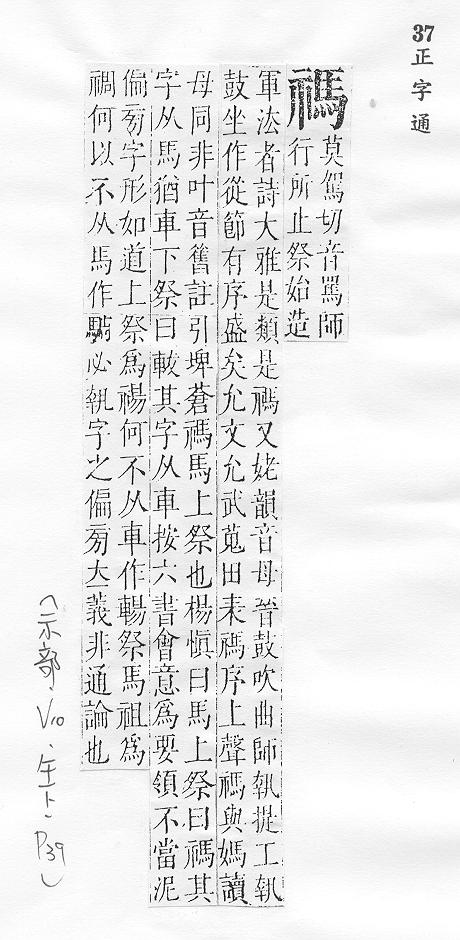 37
正字通
禡
莫駕切音罵師
行所止祭始造
軍法者詩大雅是類是禡又姥韻音母晉鼓吹曲師執提工執
鼓坐作從節有序盛矣允文允武蒐田表禡序上聲禡與媽讀
母同非叶音舊註引埤蒼禡馬上祭也楊愼曰馬上祭曰禡其
字从馬猶車下祭曰軷其字从車按六書會意爲要領不當泥
偏旁字形如道上祭爲禓何不从車作輰祭馬祖爲
禂何以不从馬作必執字之偏旁大義非通論也
(示部、V10、P39)